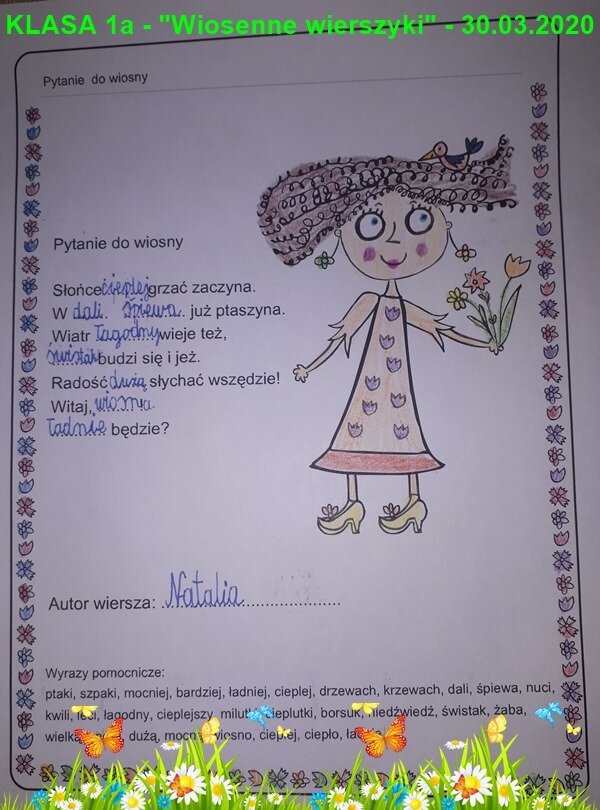 KLASA 1a - "Wiosenne wierszyki" - 30.03.2020
Pytanie do wiosny
Pytanie do wiosny
Słońce cieplej grzać zaczyna.
W dali śpiewa już ptaszyna.
Wiatr łagodny wieje też,
świstak budzi się i jeż.
Radość dużą słychać wszędzie!
Witaj, wiosna
ładnie będzie?
Autor wiersza: Natalia
Wyrazy pomocnicze:
ptaki, szpaki, mocniej, bardziej, ładniej, cieplej, drzewach, krzewach, dali, śpiewa, nuci,
kwili, łagodny, cieplejszy, milutki, cieplutki, borsuk, niedźwiedź, świstak, żaba,
dużą, wiosno, cieplej, ciepło,